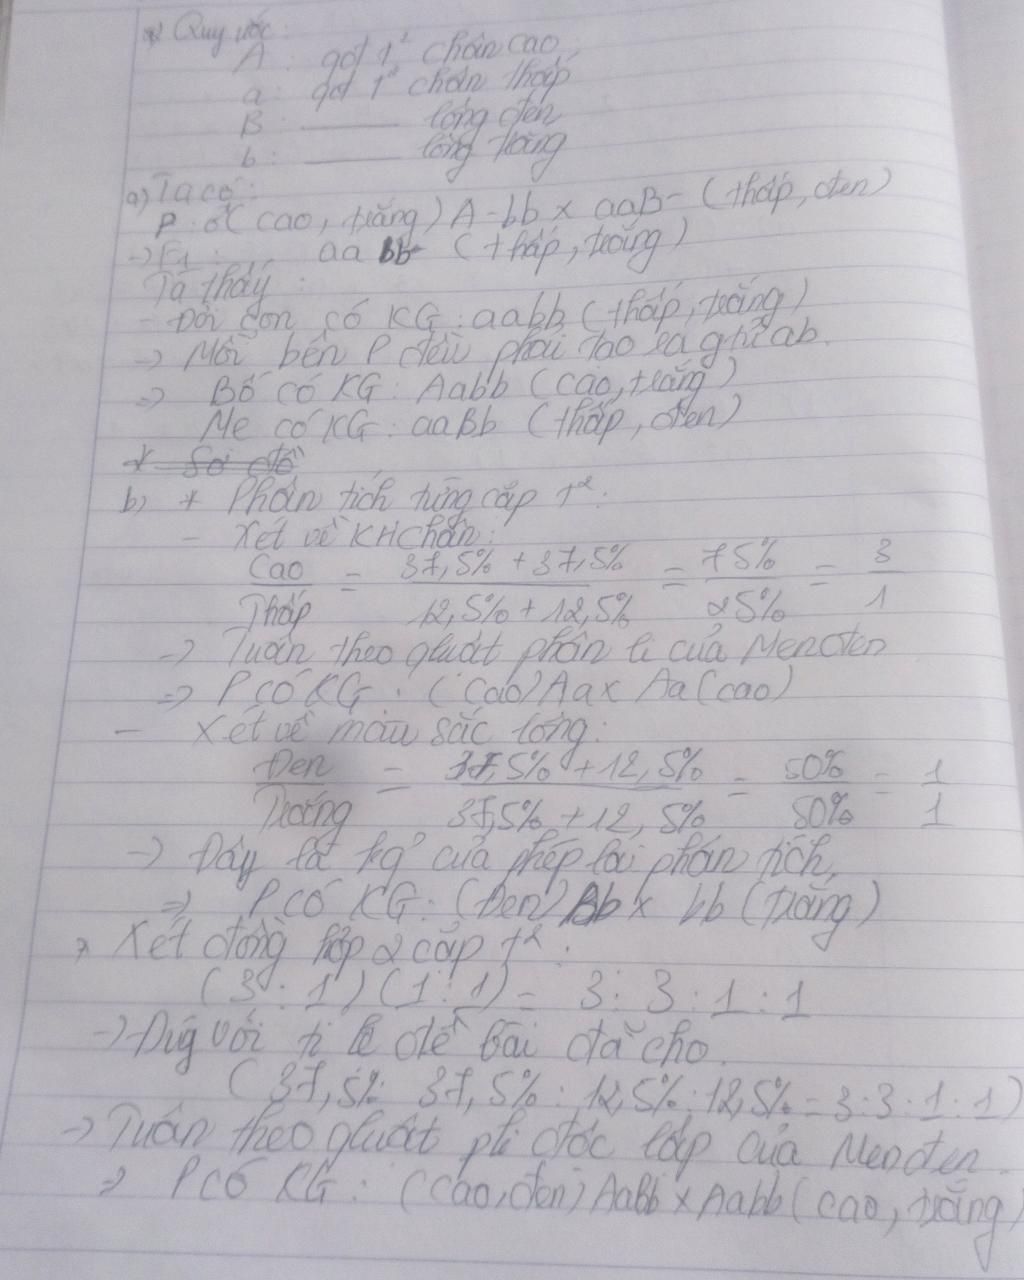 * Quy ước:
A : qđ 1² chân cao,
a : qđ 1² chân thấp
B : ——— lông đen
b : ——— lông trắng
a) Ta có:
P : ♂ (cao, trắng) A-bb x aaB- (thấp, đen)
→ F1 : aabb (thấp, trắng)
Ta thấy :
- Đời con có KG : aabb (thấp, trắng)
→ Mỗi bên P đều phải tạo ra gtử ab.
=> Bố có KG : Aabb (cao, trắng)
Mẹ có KG : aaBb (thấp, đen)
* Sơ đồ
b) * Phân tích từng cặp t².
- Xét về KH chân:
Cao / Thấp = 37,5% + 37,5% / 12,5% + 12,5% = 75% / 25% = 3 / 1
-> Tuân theo qluật phân li của Menđen
=> P có KG : (Cao) Aa x Aa (cao)
- Xét về màu sắc lông:
Đen / Trắng = 37,5% + 12,5% / 37,5% + 12,5% = 50% / 50% = 1 / 1
-> Đây là kq của phép lai phân tích,
=> P có KG : (Đen) Bb x bb (trắng)
* Xét đồng hợp 2 cặp t² :
(3 : 1) (1 : 1) = 3 : 3 : 1 : 1
-> Đúg với tỉ lệ đề bài đã cho.
(37,5% : 37,5% : 12,5% : 12,5% = 3 : 3 : 1 : 1)
-> Tuân theo qluật pli độc lập của Menđen.
=> P có KG : (cao, đen) Aabb x Aabb (cao, trắng)